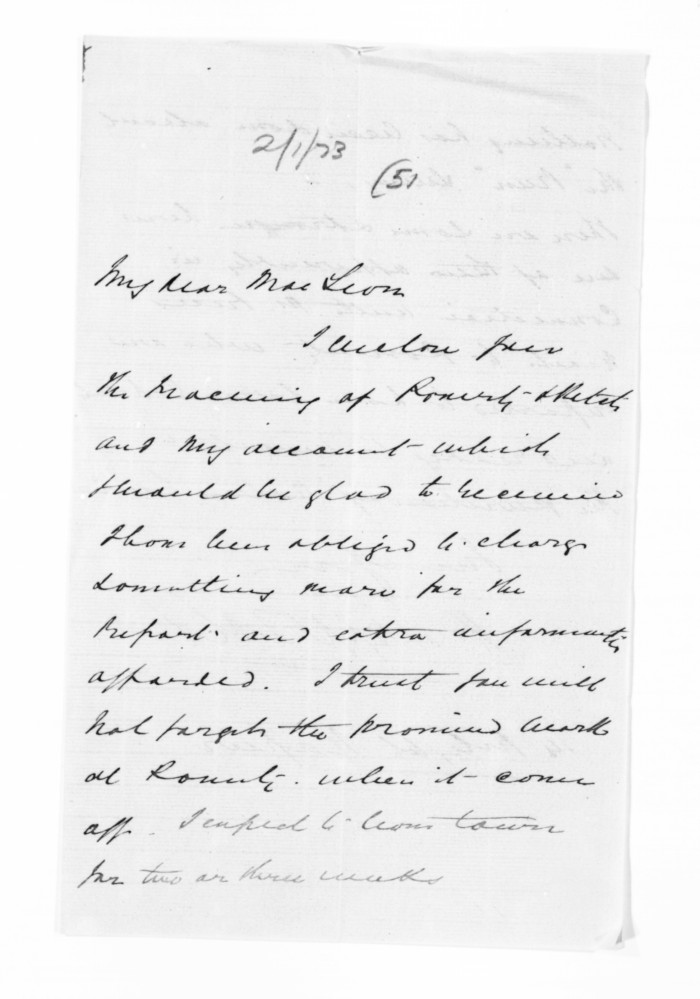 2/1/73
(51
My dear Mac Lean
I enclose you
the tracing of sketch
and my account which
I should be glad to receive
I have been obliged to charge
something more for the
Report and extra information
afforded. I trust you will
not forget the promised work
at when it comes
off. I expect to leave town
for two or three weeks